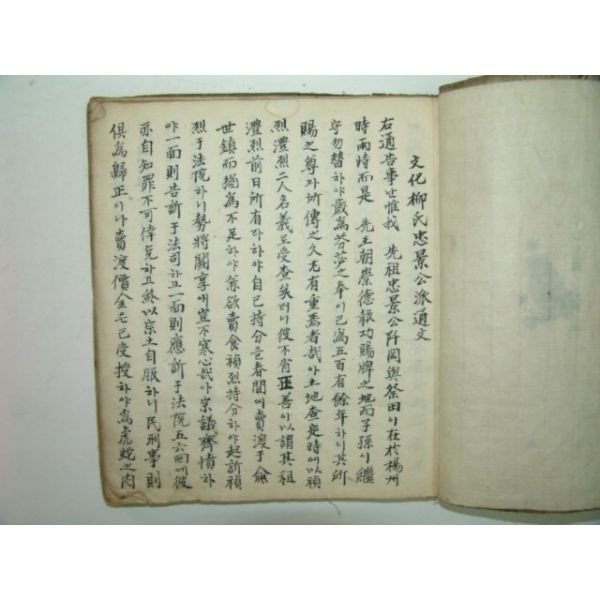 文化柳氏忠景公派通文
右通告事난惟我 先祖忠景公阡岡與祭田이在於楊州
時兩時而是 先王朝崇德報功賜牌之地而子孫이繼
守勿替하야歲爲芬苾之奉이已爲五百有餘年하니其所
賜之尊과所傳之久尤有重焉者哉아土地查定時에以禎
烈灃烈二人名義로受查矣러니彼不肖正善이以謂其祖
灃烈前日所有라하야自己持分을春間에賣渡于俞
世鎮而猶爲不足하야兼欲賣食禎烈持分하야起訴禎
烈于法院하니勢將關享애豈不寒心哉아宗議齊憤하
야一面則告訴于法司하고一面則應訴于法院五六回에彼
亦自知罪不可倖免하고終以宗土自服하니民刑事則
俱爲歸正이나賣渡價金은已受授하야爲虎蛇之肉